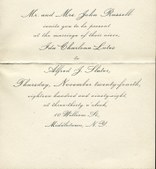 Mr. and Mrs. John Russell
invite you to be present
at the marriage of their niece,
Ida Charlean
to
Alfred J. Slater,
Thursday, November twenty-fourth,
eighteen hundred and ninety-eight,
at three thirty o'clock,
10 William St.,
Middletown, N.Y.